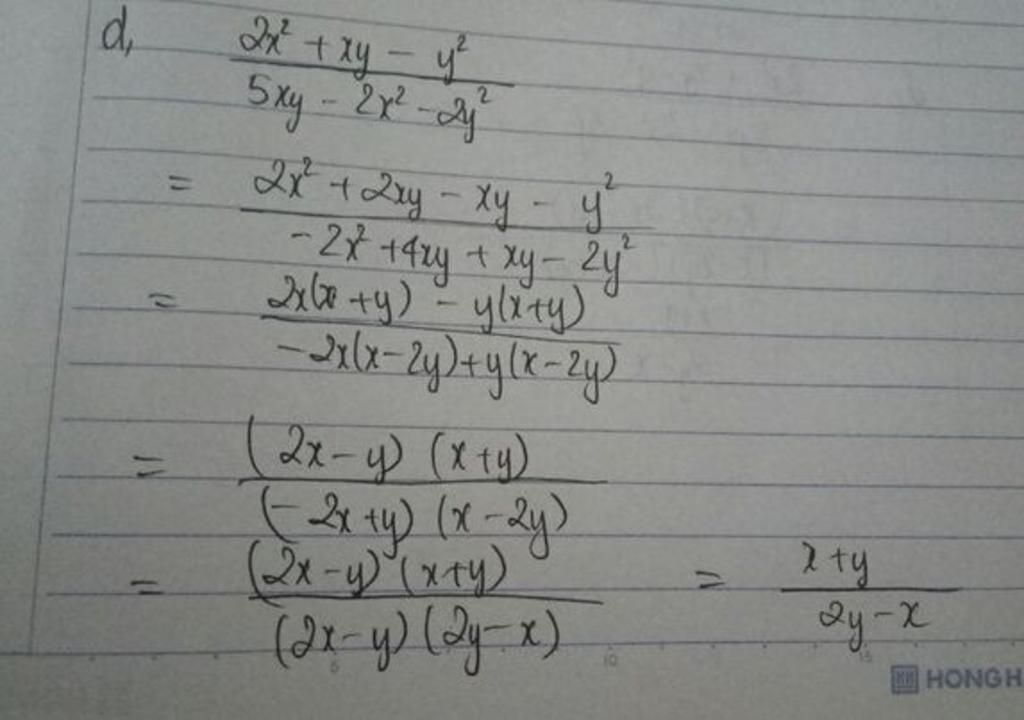 d, (2x² + xy - y²)/(5xy - 2x² - 2y²)
= (2x² + 2xy - xy - y²)/(-2x² + 4xy + xy - 2y²)
= (2x(x + y) - y(x+y))/(-2x(x-2y)+y(x-2y))
= ((2x-y) (x+y))/((-2x+y) (x-2y))
= ((2x-y) (x+y))/((2x-y) (2y-x)) = (x+y)/(2y-x)
5 10 15
HONG H